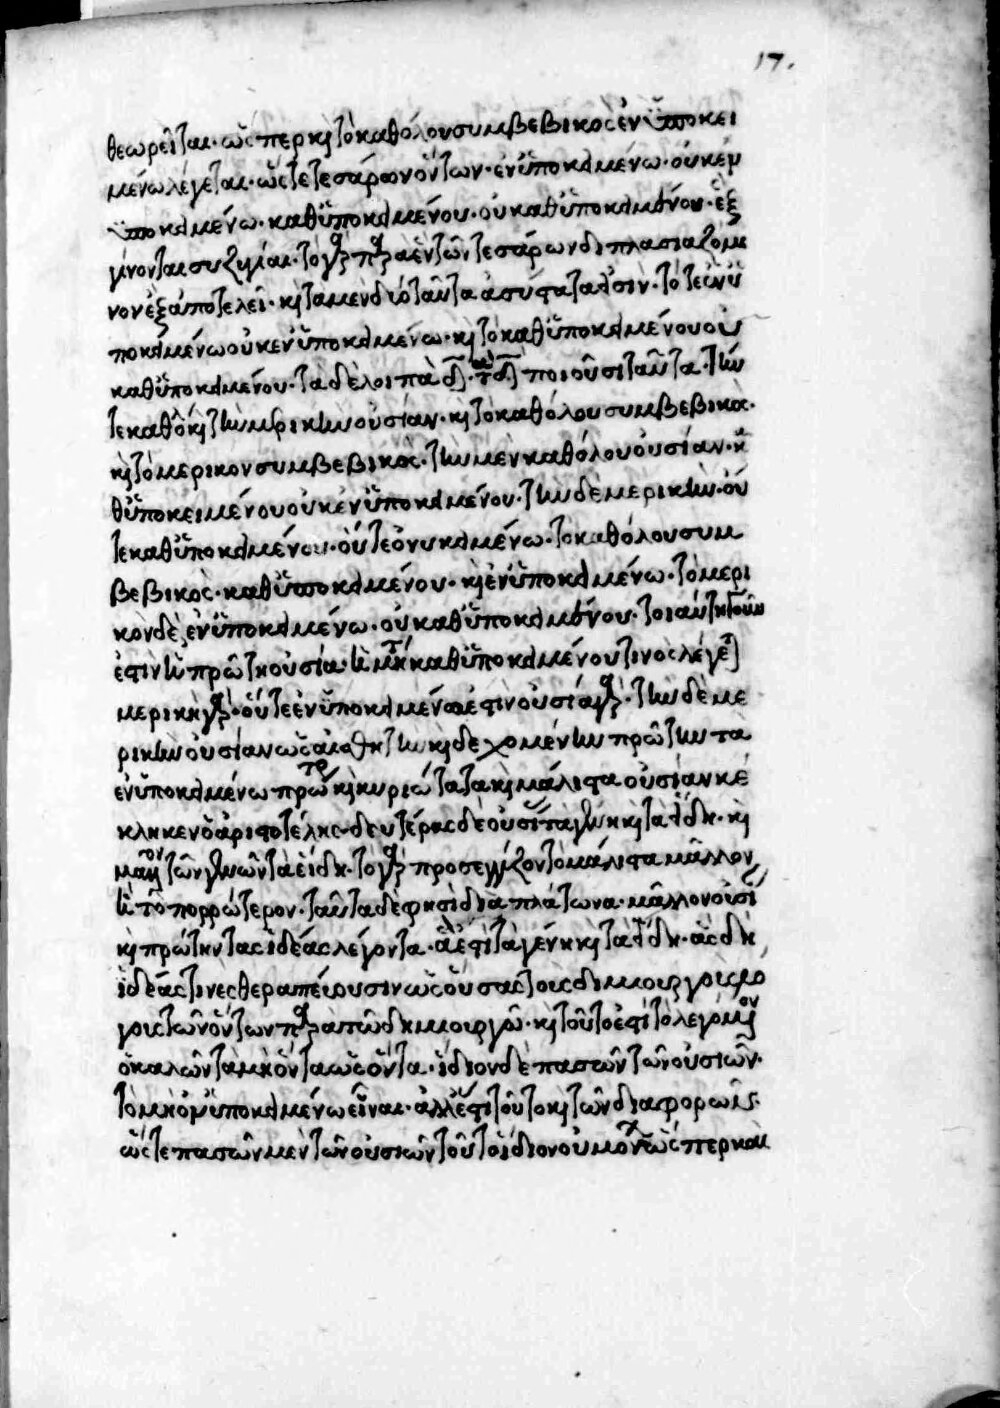 17.
θεωρεῖται· ὥσπερ κ̀ τὸ καθόλου συμβεβικὸς ἐν ὑποκει
μένω λέγεται· ὥστε τεσάρων ὄντων· ἐν ὑποκειμένω· οὐκ ἐν
ὑποκειμένω· καθ ὑποκειμένου· οὐ καθ ὑποκειμένου· ἓξ
γίνονται συζυγίαι· τὸ γὰρ παρὰ ἓν τῶν τεσάρων διπλασιαζόμε
νον ἓξ ἀποτελεῖ· κ̀ τὰ μὲν δύο ταῦτα ἀσύστατά εἰσιν· τό τε ἐν ὑ
ποκειμένω οὐκ ἐν ὑποκειμένω· κ̀ τὸ καθ ὑποκειμένου οὐ
καθ ὑποκειμένου· τὰ δὲ λοιπὰ ποιοῦσι ταῦτα· τὴν
τε καθόλου κ̀ τὴν μερικὴν οὐσίαν· κ̀ τὸ καθόλου συμβεβικὸς·
κ̀ τὸ μερικὸν συμβεβικὸς· τὴν μὲν καθόλου οὐσίαν· κα
θ ὑποκειμένου οὐκ ἐν ὑποκειμένου· τὴν δὲ μερικὴν· οὔ
τε καθ ὑποκειμένου· οὔτε ἐν ὑποκειμένω· τὸ καθόλου συμ
βεβικὸς· καθ ὑποκειμένου· κ̀ ἐν ὑποκειμένω· τὸ μερι
κὸν δὲ, ἐν ὑποκειμένω· οὐ καθ ὑποκειμένου· τοιαύτη γοῦν
ἐστιν ἡ πρώτη οὐσία· ἡ μήτε καθ ὑποκειμένου τινὸς λέγεται
μερικὴ γάρ· οὔτε ἐν ὑποκειμένω ἐστιν οὐσία γάρ· τὴν δὲ με
ρικὴν οὐσίαν ὡς αἰσθητὴν κ̀ δεχομένην πρώτην τὰ
ἐν ὑποκειμένω πρώτο κ̀ κυριώτατα κ̀ μάλιστα οὐσίαν κέ
κληκεν ὁ ἀριστοτέλης· δευτέρας δὲ οὐσίας τὰ γένη κ̀ τὰ εἴδη· κ̀
μᾶλλον τῶν γενῶν τὰ εἴδη· τὸ γὰρ προσεγγίζον τὸ μάλιστα μᾶλλον
ἢ τὸ πορρώτερον· ταῦτα δὲ φησὶ διὰ πλάτωνα· μᾶλλον οὐσίας
κ̀ πρώτην τὰς ἰδέας λέγοντα· ἅ ἐστι τὰ γένη κ̀ τὰ εἴδη· ἃς δὴ
ἰδέας τινες θεραπεύουσιν ὡς οὔσας τοῖς δημιουργοῖς λό
γοις τῶν ὄντων παρὰ τῶ δημιουργῶ· κ̀ τοῦτο ἐστὶ τὸ λεγόμενον
ὁ καλῶν τὰ μὴ ὄντα ὡς ὄντα· ἴδιον δὲ πασῶν τῶν οὐσιῶν·
τὸ μὴ ἐν ὑποκειμένω εἶναι· ἀλλ ἔστι τοῦτο κ̀ τῶν διαφορῶν·
ὥστε πασῶν μὲν τῶν οὐσιῶν τοῦτο ἴδιον οὐ μόνων ὥσπερ καὶ